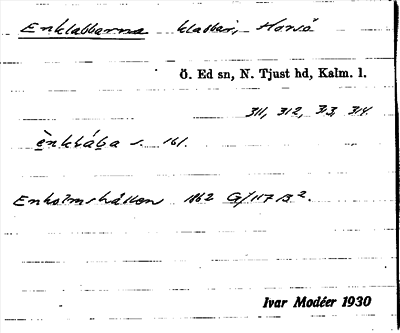 Enklabbarna klabbar, Horsö
Ö. Ed sn, N. Tjust hd, Kalm. l.
311, 312, 313, 314.
s. 161.
Enholmshällen 1862 G/117 B 2.
Ivar Modéer 1930